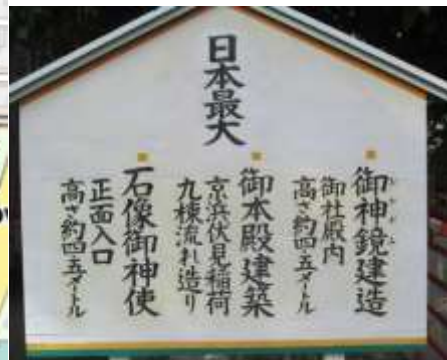 日本最大
御神鏡建造
御社殿内
高さ約四・五メートル
御本殿建築
京浜伏見稲荷
九棟流れ造り
石像御神使
正面入口
高さ約四・五メートル